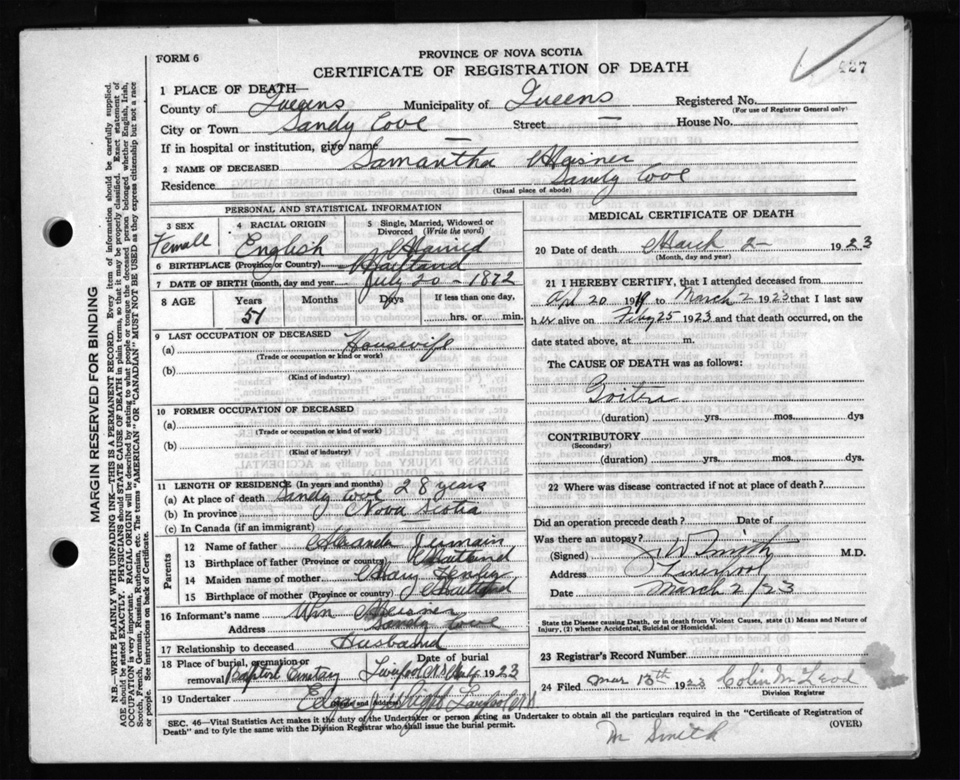 FORM 6
PROVINCE OF NOVA SCOTIA
CERTIFICATE OF REGISTRATION OF DEATH
427
1 PLACE OF DEATH—
County of Queens Municipality of Queens Registered No.
(For use of Registrar General only)
City or Town Sandy Cove Street — House No.
If in hospital or institution, give name —
2 NAME OF DECEASED Samantha Meisner
Residence Sandy Cove
(Usual place of abode)
PERSONAL AND STATISTICAL INFORMATION
3 SEX Female
4 RACIAL ORIGIN English
5 Single, Married, Widowed or Divorced (Write the word) Married
6 BIRTHPLACE (Province or Country) Maitland
7 DATE OF BIRTH (month, day and year) July 20 - 1872
8 AGE Years 51 Months Days If less than one day, hrs. or min.
9 LAST OCCUPATION OF DECEASED
(a) Housewife
(Trade or occupation or kind or work)
(b)
(Kind of industry)
10 FORMER OCCUPATION OF DECEASED
(a)
(Trade or occupation or kind of work)
(b)
(Kind of industry)
11 LENGTH OF RESIDENCE (In years and months)
(a) At place of death Sandy Cove 28 years
(b) In province Nova Scotia
(c) In Canada (if an immigrant)
Parents
12 Name of father Alexander
13 Birthplace of father (Province or country) Maitland
14 Maiden name of mother Mary
15 Birthplace of mother (Province or country) Maitland
16 Informant's name Wm Meisner
Address Sandy Cove
17 Relationship to deceased Husband
18 Place of burial, cremation or removal Baptist Cemetary Liverpool N.S. Date of burial 1923
19 Undertaker Liverpool N.S.
(Name and address)
MEDICAL CERTIFICATE OF DEATH
20 Date of death March 2 - 1923
(Month, day and year)
21 I HEREBY CERTIFY, that I attended deceased from
Apl 20 19 to March 2 1923 that I last saw
her alive on Feby 25 1923 and that death occurred, on the
date stated above, at m.
The CAUSE OF DEATH was as follows:
Goitre
(duration) yrs. mos. dys
CONTRIBUTORY
(Secondary)
(duration) yrs. mos. dys.
22 Where was disease contracted if not at place of death?
Did an operation precede death? Date of
Was there an autopsy?
(Signed) J W Smith M.D.
Address Liverpool
Date March 2/23
State the Disease causing Death, or in death from Violent Causes, state (1) Means and Nature of
Injury, (2) whether Accidental, Suicidal or Homicidal.
23 Registrar's Record Number
24 Filed Mar 13th 1923 Colin McLeod
Division Registrar
SEC. 46—Vital Statistics Act makes it the duty of the Undertaker or person acting as Undertaker to obtain all the particulars required in the "Certificate of Registration of
Death" and to fyle the same with the Division Registrar who shall issue the burial permit.
(OVER)
M Smith
MARGIN RESERVED FOR BINDING
N.B.—WRITE PLAINLY WITH UNFADING INK—THIS IS A PERMANENT RECORD. Every item of information should be carefully supplied.
AGE should be stated EXACTLY. PHYSICIANS should STATE CAUSE OF DEATH in plain terms, so that it may be properly classified. Exact statement of
OCCUPATION is very important. RACIAL ORIGIN will be described by stating to what people or tongue the deceased person belonged whether English, Irish,
Scotch, French, German, Russian, Ruthenian, etc. The terms "AMERICAN" OR "CANADIAN" MUST NOT BE USED as they express citizenship but not a race
or people. See instructions on back of Certificate.